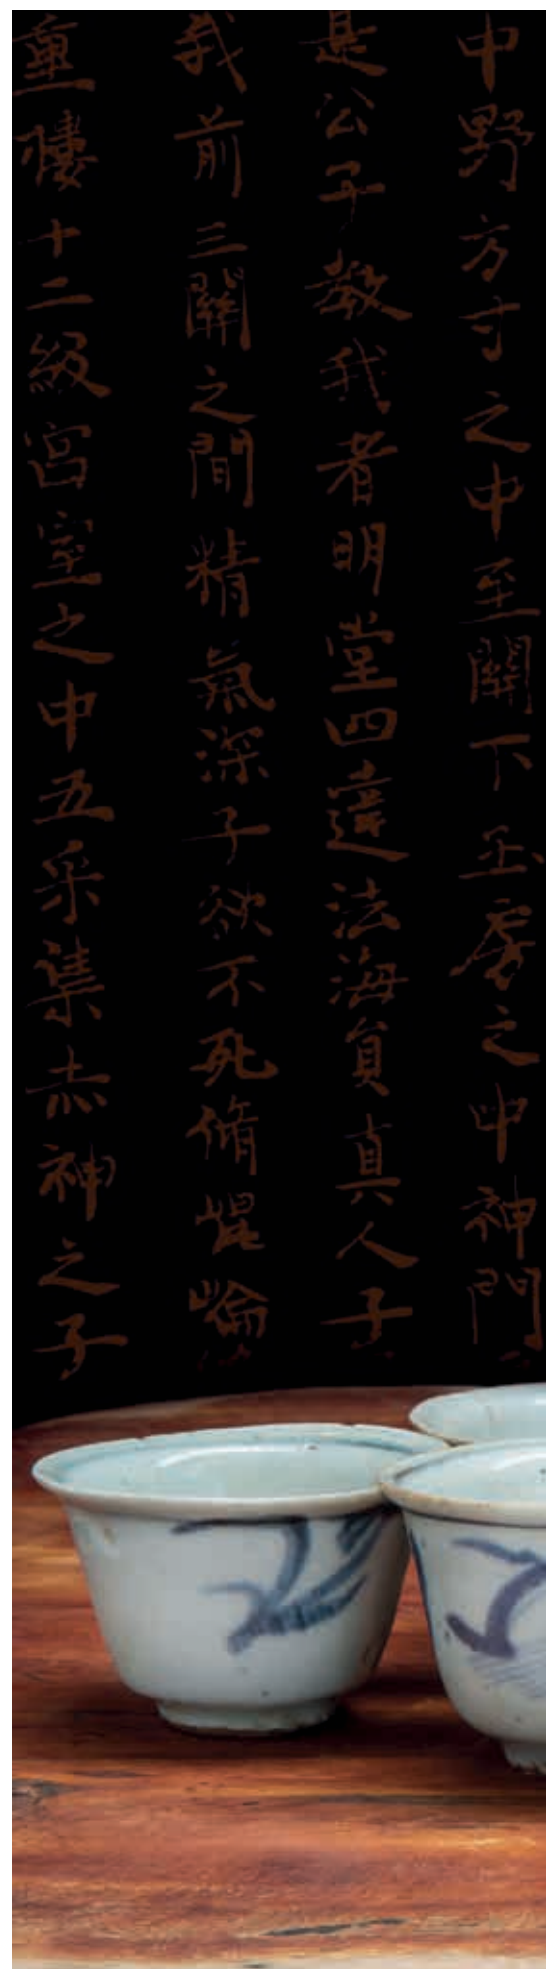 中野方寸之中至關下玉房之中神門
是公子教我者明堂四達法海員真人子
我前三關之間精氣深子欲不死脩崐崘
重樓十二級宮室之中五采集赤神之子